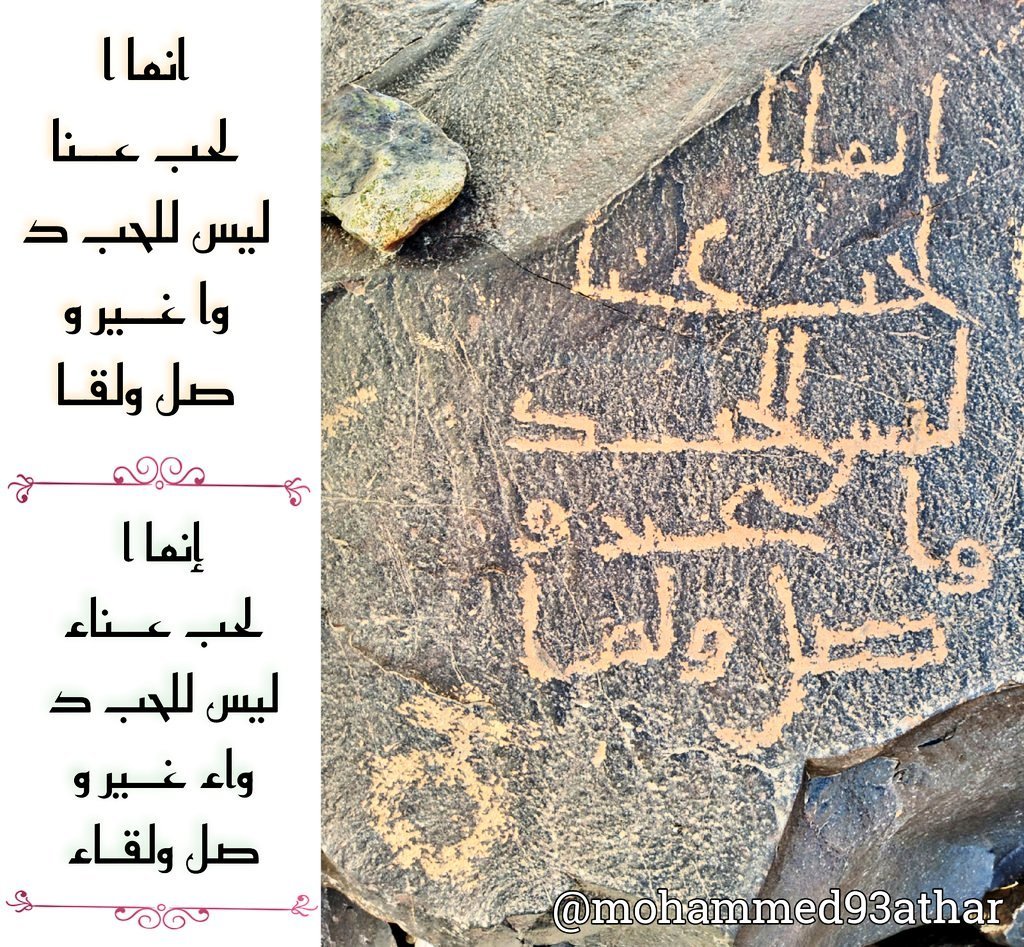 انما ا
لحب عنا
ليس للحب د
وا غير و
صل ولقا
إنما ا
لحب عناء
ليس للحب د
واء غير و
صل ولقاء
انما ا
لحب عنا
ليس للحب د
وا غير و
صل ولقا
@mohammed93athar